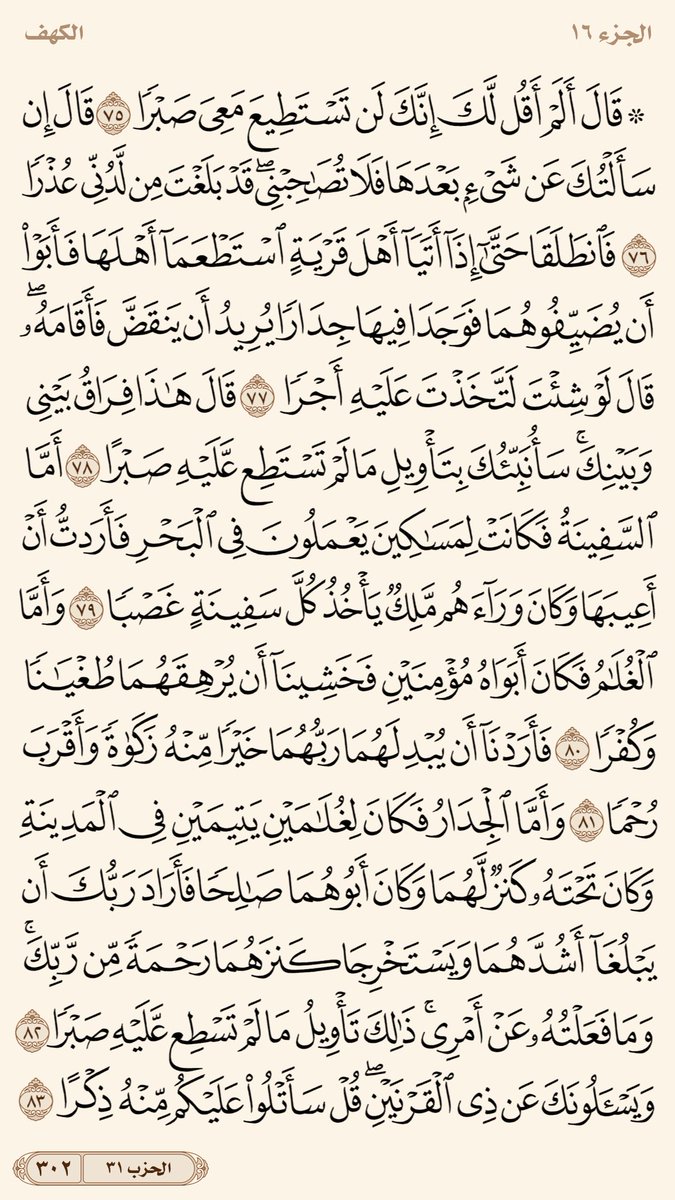 الجزء ١٦
الكهف
۞ قَالَ أَلَمْ أَقُل لَّكَ إِنَّكَ لَن تَسْتَطِيعَ مَعِىَ صَبْرًا ٧٥ قَالَ إِن
سَأَلْتُكَ عَن شَىْءٍۭ بَعْدَهَا فَلَا تُصَٰحِبْنِى ۖ قَدْ بَلَغْتَ مِن لَّدُنِّى عُذْرًا
٧٦ فَٱنطَلَقَا حَتَّىٰٓ إِذَآ أَتَيَآ أَهْلَ قَرْيَةٍ ٱسْتَطْعَمَآ أَهْلَهَا فَأَبَوْا۟
أَن يُضَيِّفُوهُمَا فَوَجَدَا فِيهَا جِدَارًا يُرِيدُ أَن يَنقَضَّ فَأَقَامَهُۥ ۖ
قَالَ لَوْ شِئْتَ لَتَّخَذْتَ عَلَيْهِ أَجْرًا ٧٧ قَالَ هَٰذَا فِرَاقُ بَيْنِى
وَبَيْنِكَ ۚ سَأُنَبِّئُكَ بِتَأْوِيلِ مَا لَمْ تَسْتَطِع عَّلَيْهِ صَبْرًا ٧٨ أَمَّا
ٱلسَّفِينَةُ فَكَانَتْ لِمَسَٰكِينَ يَعْمَلُونَ فِى ٱلْبَحْرِ فَأَرَدتُّ أَنْ
أَعِيبَهَا وَكَانَ وَرَآءَهُم مَّلِكٌ يَأْخُذُ كُلَّ سَفِينَةٍ غَصْبًا ٧٩ وَأَمَّا
ٱلْغُلَٰمُ فَكَانَ أَبَوَاهُ مُؤْمِنَيْنِ فَخَشِينَآ أَن يُرْهِقَهُمَا طُغْيَٰنًا
وَكُفْرًا ٨٠ فَأَرَدْنَآ أَن يُبْدِلَهُمَا رَبُّهُمَا خَيْرًا مِّنْهُ زَكَوٰةً وَأَقْرَبَ
رُحْمًا ٨١ وَأَمَّا ٱلْجِدَارُ فَكَانَ لِغُلَٰمَيْنِ يَتِيمَيْنِ فِى ٱلْمَدِينَةِ
وَكَانَ تَحْتَهُۥ كَنزٌ لَّهُمَا وَكَانَ أَبُوهُمَا صَٰلِحًا فَأَرَادَ رَبُّكَ أَن
يَبْلُغَآ أَشُدَّهُمَا وَيَسْتَخْرِجَا كَنزَهُمَا رَحْمَةً مِّن رَّبِّكَ ۚ
وَمَا فَعَلْتُهُۥ عَنْ أَمْرِى ۚ ذَٰلِكَ تَأْوِيلُ مَا لَمْ تَسْطِع عَّلَيْهِ صَبْرًا ٨٢
وَيَسْـَٔلُونَكَ عَن ذِى ٱلْقَرْنَيْنِ ۖ قُلْ سَأَتْلُوا۟ عَلَيْكُم مِّنْهُ ذِكْرًا ٨٣
الحزب ٣١
٣٠٢